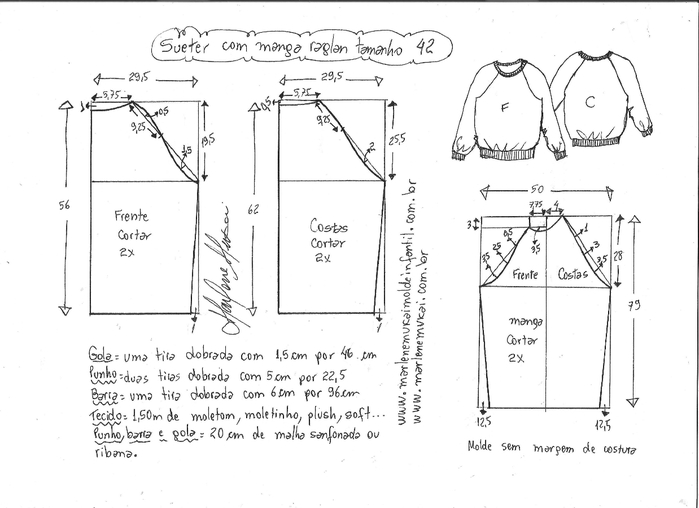 Sueter com manga raglan tamanho 42
29,5
29,5
5,75
5,75
0,5
9,25
9,25
1,5
2
19,5
25,5
56
62
Frente
Cortar
2x
Costas
Cortar
2x
1
1
Marlene Mukai
www.marlenemukaimoldeinfantil.com.br
www.marlenemukai.com.br
F
C
50
7,75
4
3
3,5
0,5
2,5
3,5
1
3
3,5
28
79
Frente
Costas
manga
Cortar
2x
12,5
12,5
Molde sem margem de costura
Gola = uma tira dobrada com 1,5cm por 46 cm
Punho = duas tiras dobrada com 5cm por 22,5
Barra = uma tira dobrada com 6cm por 96cm
Tecido = 1,50m de moletom, moletinho, plush, soft...
Punho, barra e gola = 20 cm de malha sanfonada ou
ribana.